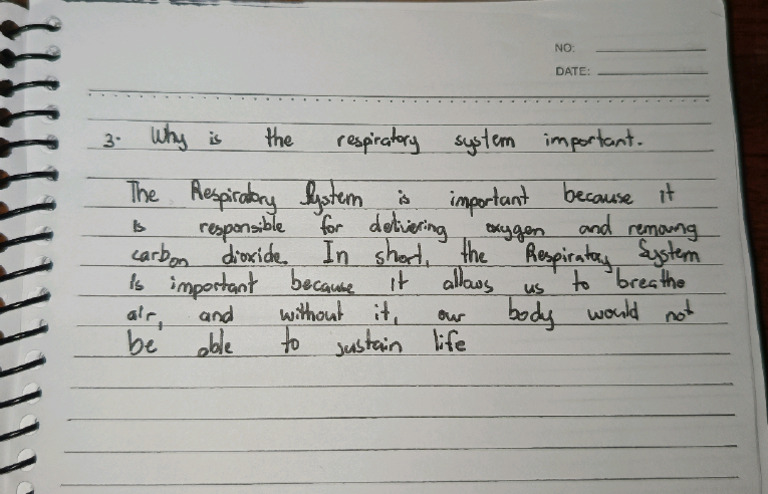 NO:
DATE:
3. Why is the respiratory system important.
The Respiratory System is important because it
is responsible for delivering oxygen and removing
carbon dioxide. In short, the Respiratory System
is important because it allows us to breathe
air, and without it, our body would not
be able to sustain life